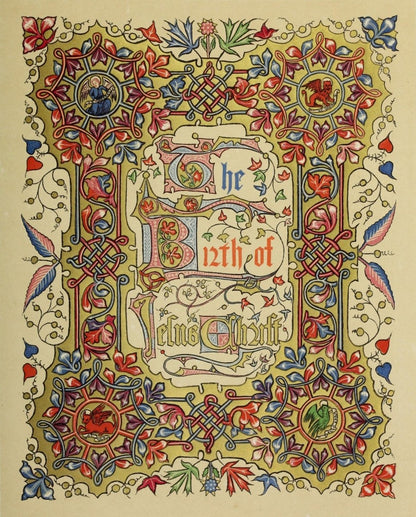 The
Birth of
Jesus Christ